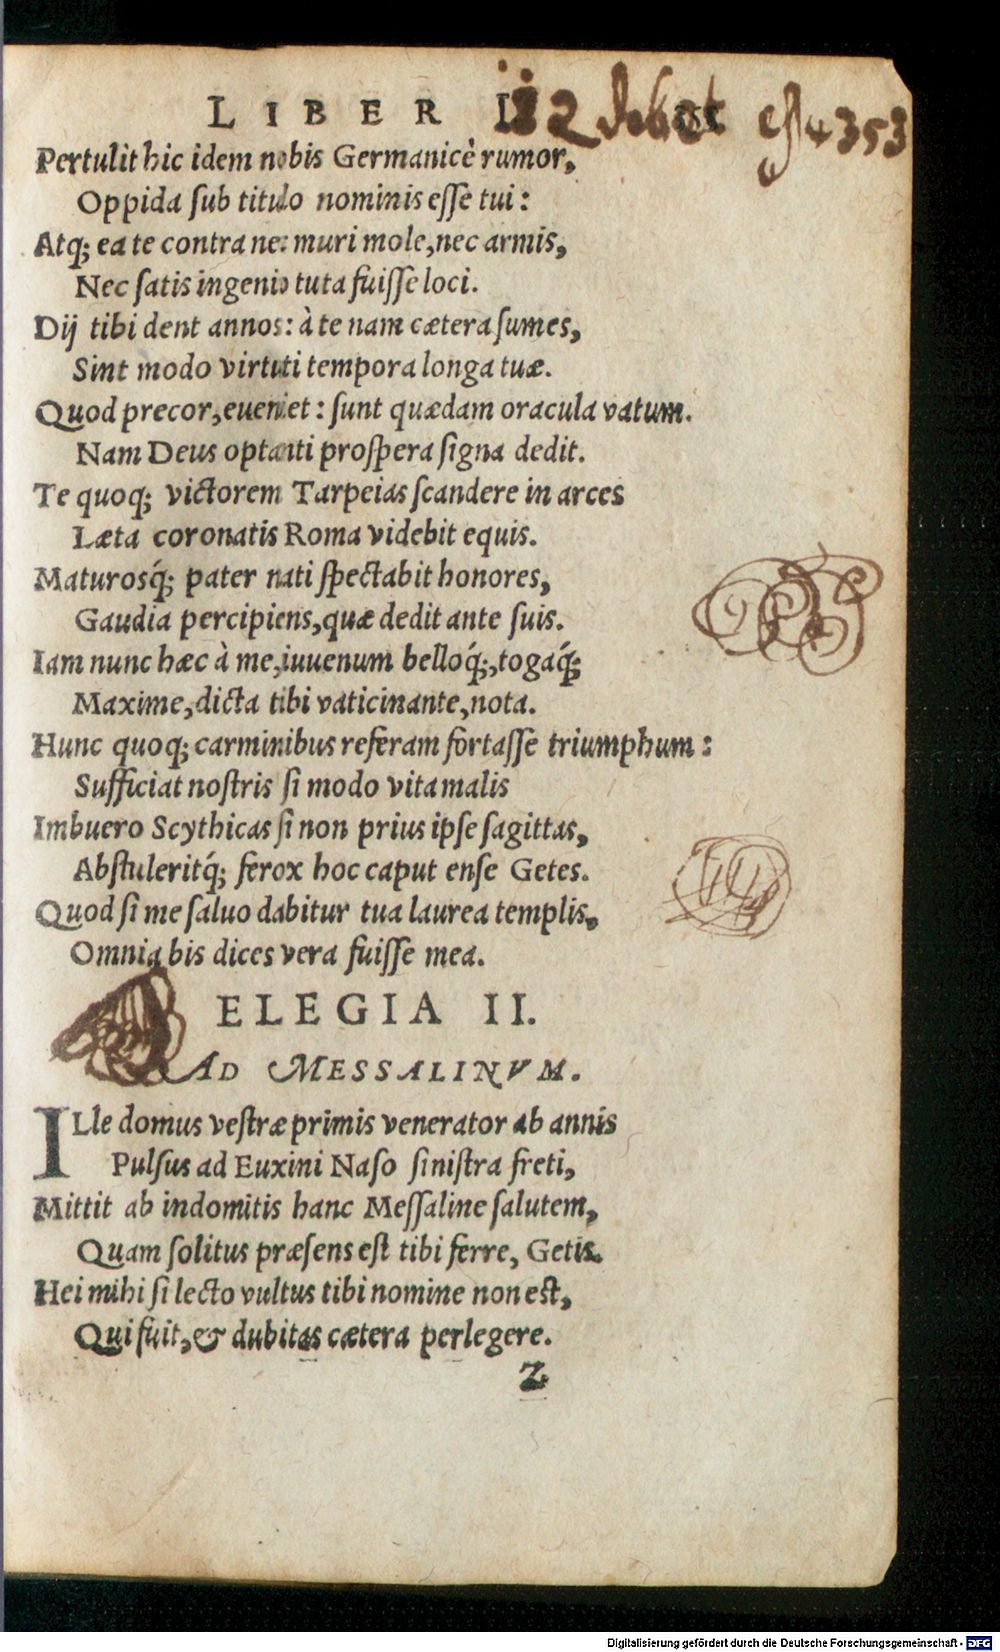 LIBER II. 
Pertulit hic idem nobis Germanicè rumor,
Oppida sub titulo nominis esse tui:
Atq; ea te contra nec muri mole, nec armis,
Nec satis ingenio tuta fuisse loci.
Dij tibi dent annos: à te nam cætera sumes,
Sint modo virtuti tempora longa tuæ.
Quod precor, eveniet: sunt quædam oracula vatum.
Nam Deus optanti prospera signa dedit.
Te quoq; victorem Tarpeias scandere in arces
Læta coronatis Roma videbit equis.
Maturosq́; pater nati spectabit honores,
Gaudia percipiens, quæ dedit ante suis.
Iam nunc hæc à me, iuvenum belloq́;, togaq́;
Maxime, dicta tibi vaticinante, nota.
Hunc quoq; carminibus referam fortasse triumphum:
Sufficiat nostris si modo vita malis
Imbuero Scythicas si non prius ipse sagittas,
Abstuleritq́; ferox hoc caput ense Getes.
Quod si me saluo dabitur tua laurea templis,
Omnia bis dices vera fuisse mea.
ELEGIA II.
AD MESSALINVM.
ILle domus vestræ primis venerator ab annis
Pulsus ad Euxini Naso sinistra freti,
Mittit ab indomitis hanc Messaline salutem,
Quam solitus præsens est tibi ferre, Getis.
Hei mihi si lecto vultus tibi nomine non est,
Qui fuit, & dubitas cætera perlegere.
Z
Digitalisierung gefördert durch die Deutsche Forschungsgemeinschaft - DFG